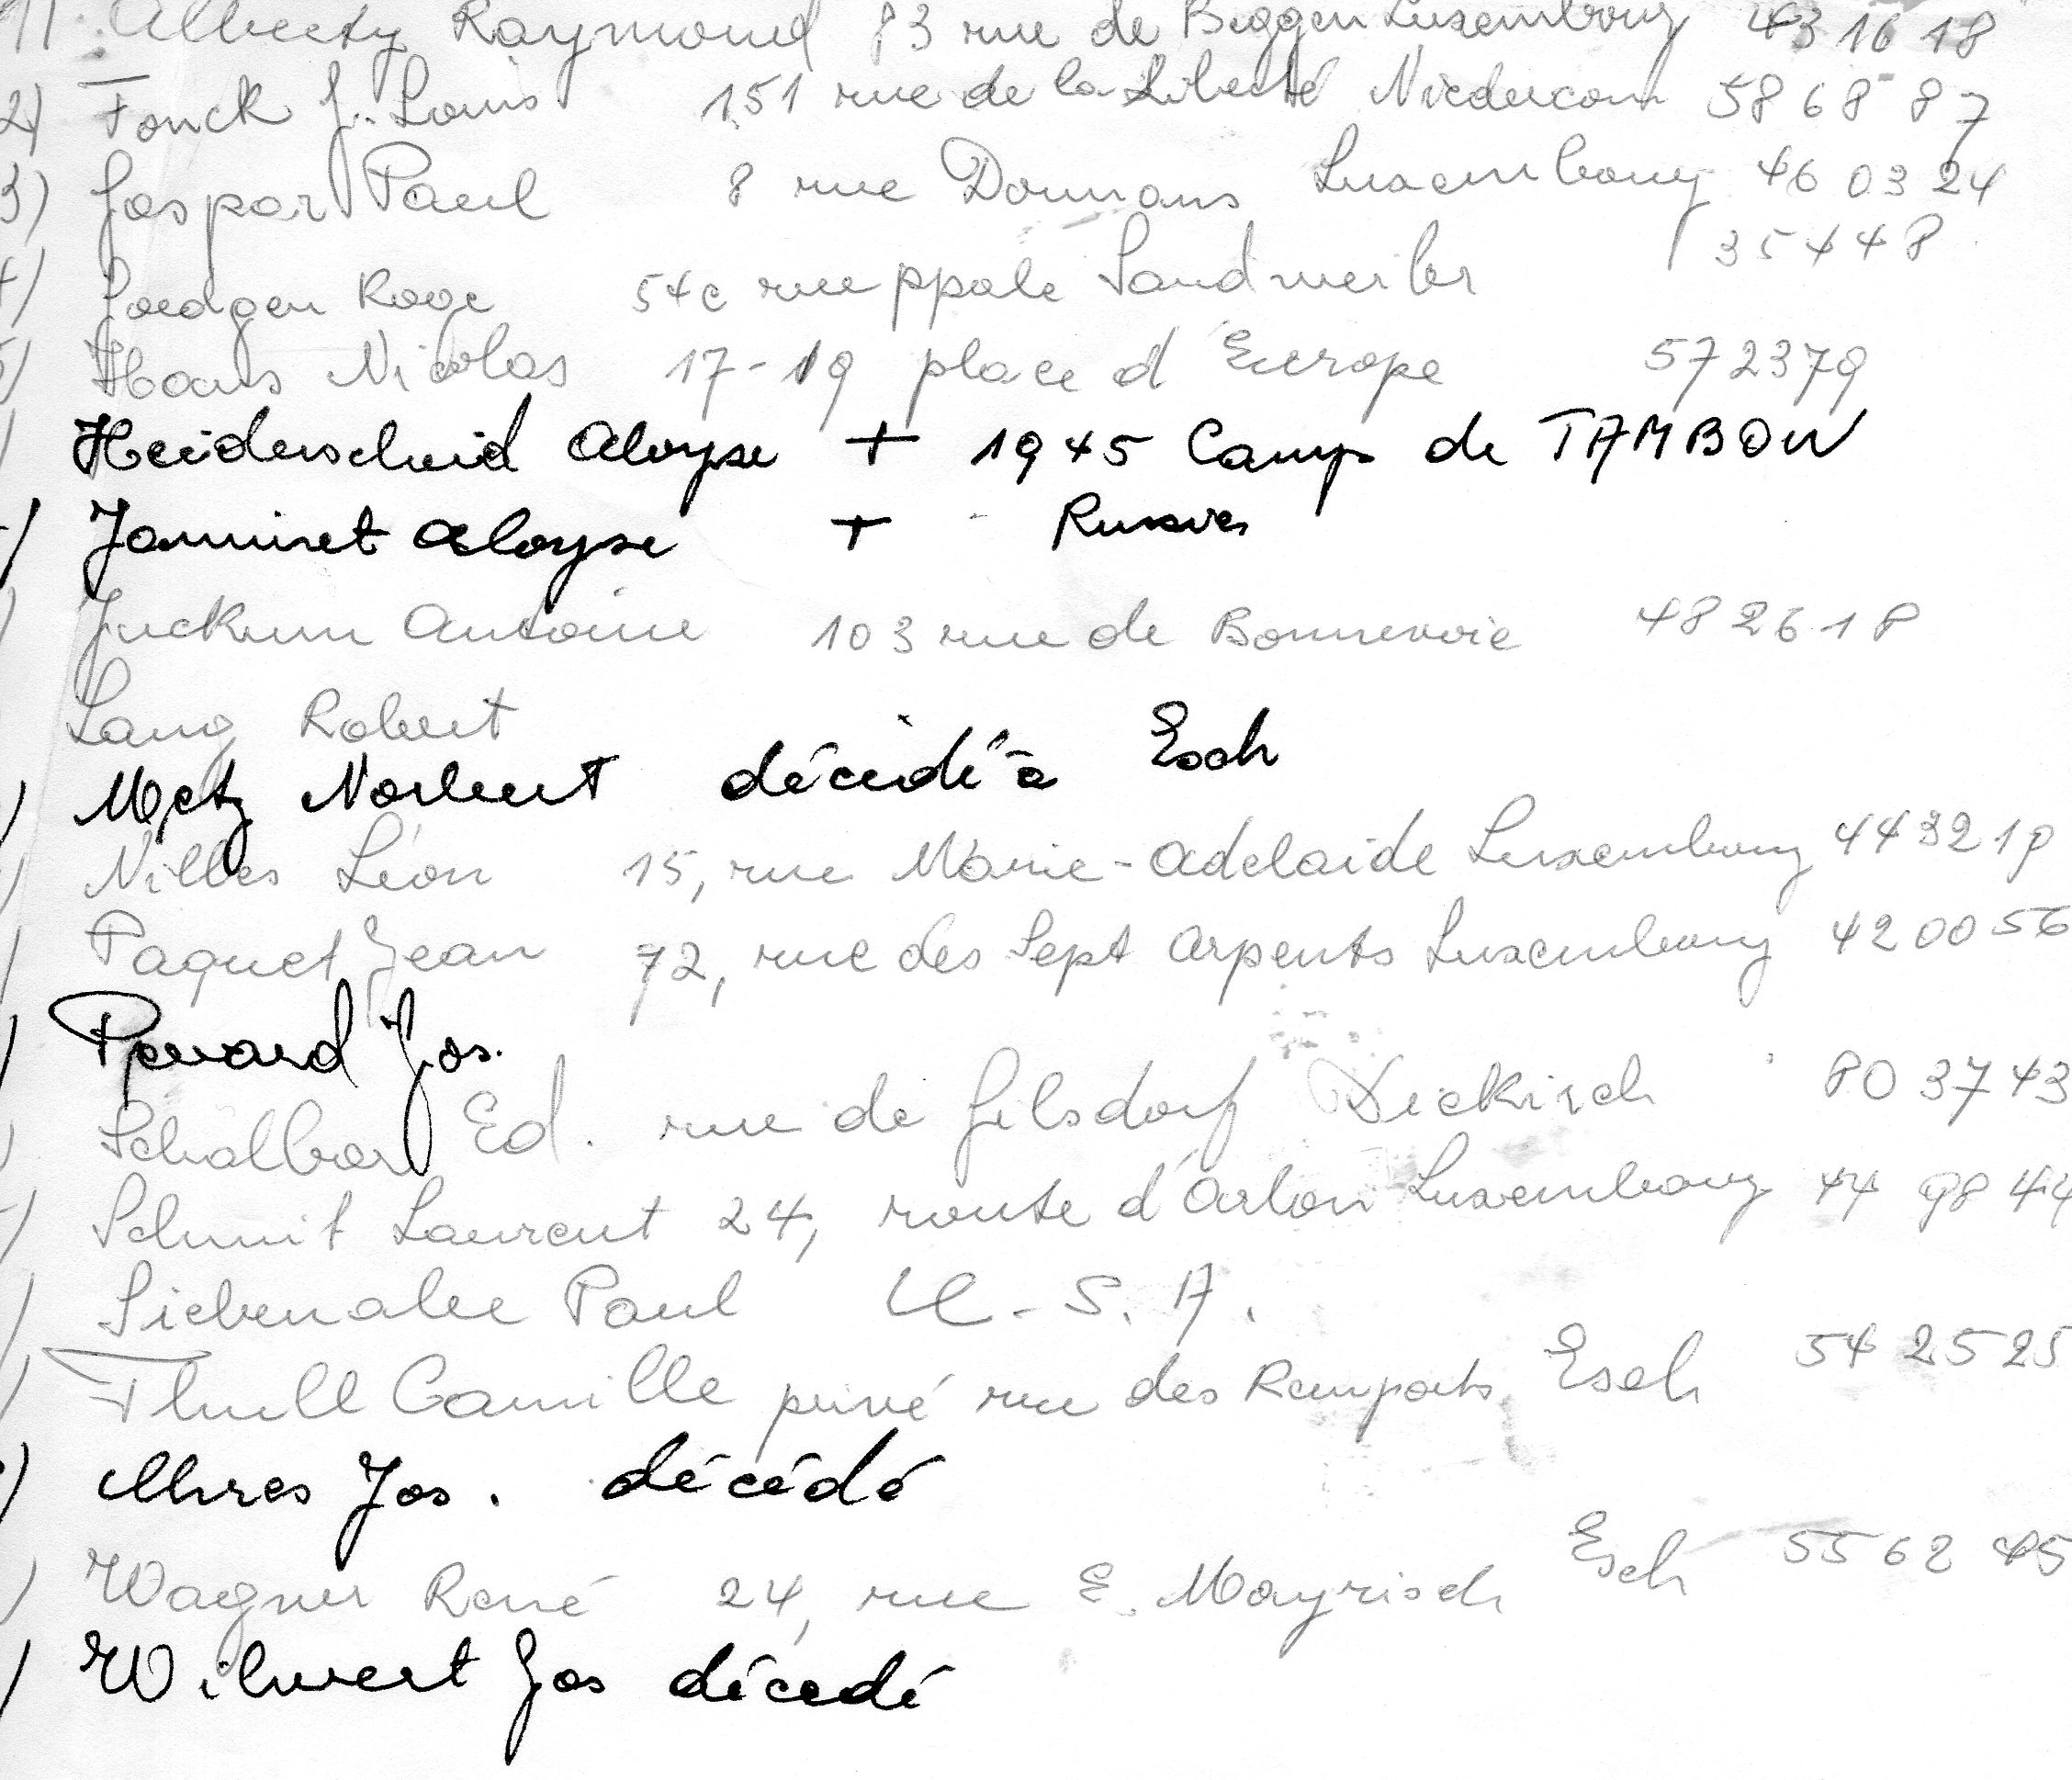 1) Alberty Raymond 83 rue de Beggen Luxembourg 43 16 18
2) Fonck J. Louis 151 rue de la Liberté Niedercorn 58 68 87
3) Gaspar Paul 8 rue Dormans Luxembourg 46 03 24
4) Goedgen Roge 54c rue ppale Sandweiler 35448
5) Haas Nicolas 17-19 place d'Europe 572379
Heiderscheid Aloyse + 1945 Camp de TAMBOW
) Jaminet Aloyse + - Russie
) Juckum Antoine 103 rue de Bonnevoie 48 26 18
Lang Robert
) Metz Norbert décédé à Esch
) Nilles Léon 15, rue Marie-Adelaide Luxembourg 443218
) Paquet Jean 72, rue des Sept Arpents Luxembourg 420056
) Jos.
) Ed. rue de Gilsdorf Diekirch 803743
) Schmit Laurent 24, route d'Arlon Luxembourg 44 98 44
) Siebenaler Paul U.S.A.
) Thull Camille privé rue des Remparts Esch 542525
) Jos. décédé
) Wagner René 24, rue E. Mayrisch Esch 5562 45
) Wilwert Jos décédé